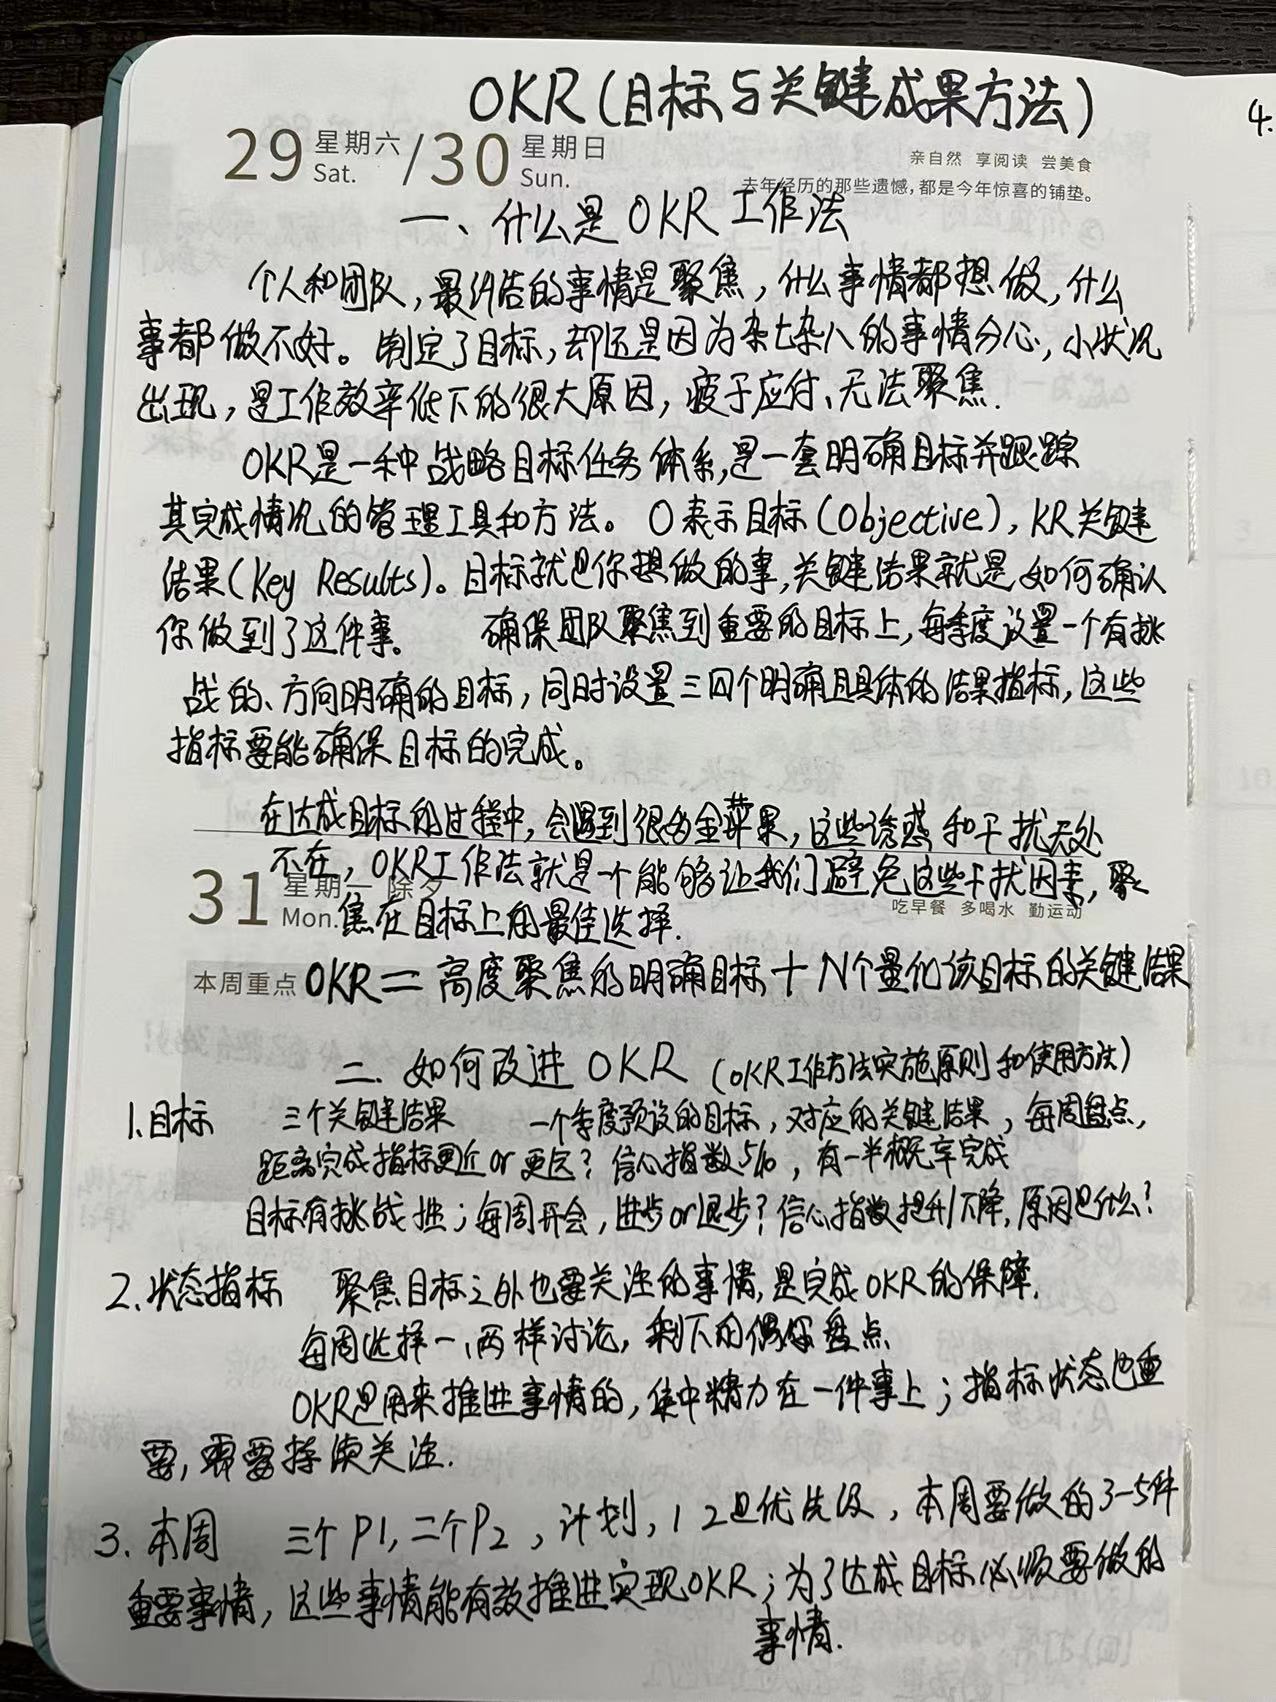 OKR(目标与关键成果方法)
4.
29 星期六 Sat. / 30 星期日 Sun.
亲自然 享阅读 尝美食
去年经历的那些遗憾,都是今年惊喜的铺垫。
一、什么是OKR工作法
个人和团队,最纠结的事情是聚焦,什么事情都想做,什么
事都做不好。制定了目标,却还是因为杂七杂八的事情分心,小状况
出现,是工作效率低下的很大原因,疲于应付、无法聚焦.
OKR是一种战略目标任务体系,是一套明确目标并跟踪
其完成情况的管理工具和方法。O表示目标(Objective),KR关键
结果(Key Results)。目标就是你想做的事,关键结果就是如何确认
你做到了这件事。 确保团队聚焦到重要的目标上,每季度设置一个有挑
战的、方向明确的目标,同时设置三四个明确且具体的结果指标,这些
指标要能确保目标的完成。
在达成目标的过程中,会遇到很多金苹果,这些诱惑和干扰无处
不在,OKR工作法就是一个能够让我们避免这些干扰因素,聚
31 星期一 除夕 Mon.
焦在目标上的最佳选择.
吃早餐 多喝水 勤运动
本周重点 OKR=高度聚焦的明确目标+N个量化该目标的关键结果
二. 如何改进OKR (OKR工作方法实施原则和使用方法)
1.目标 三个关键结果 一个季度预设的目标,对应的关键结果,每周盘点,
距离完成指标更近or更远?信心指数5/10,有一半概率完成
目标有挑战性;每周开会,进步or退步?信心指数提升/下降,原因是什么?
2.状态指标 聚焦目标之外也要关注的事情,是完成OKR的保障.
每周选择一、两样讨论,剩下的偶尔盘点
OKR是用来推进事情的,集中精力在一件事上;指标状态也重
要,需要持续关注.
3.本周 三个P1,二个P2,计划,1 2是优先级,本周要做的3-5件
重要事情,这些事情能有效推进实现OKR;为了达成目标必须要做的
事情.